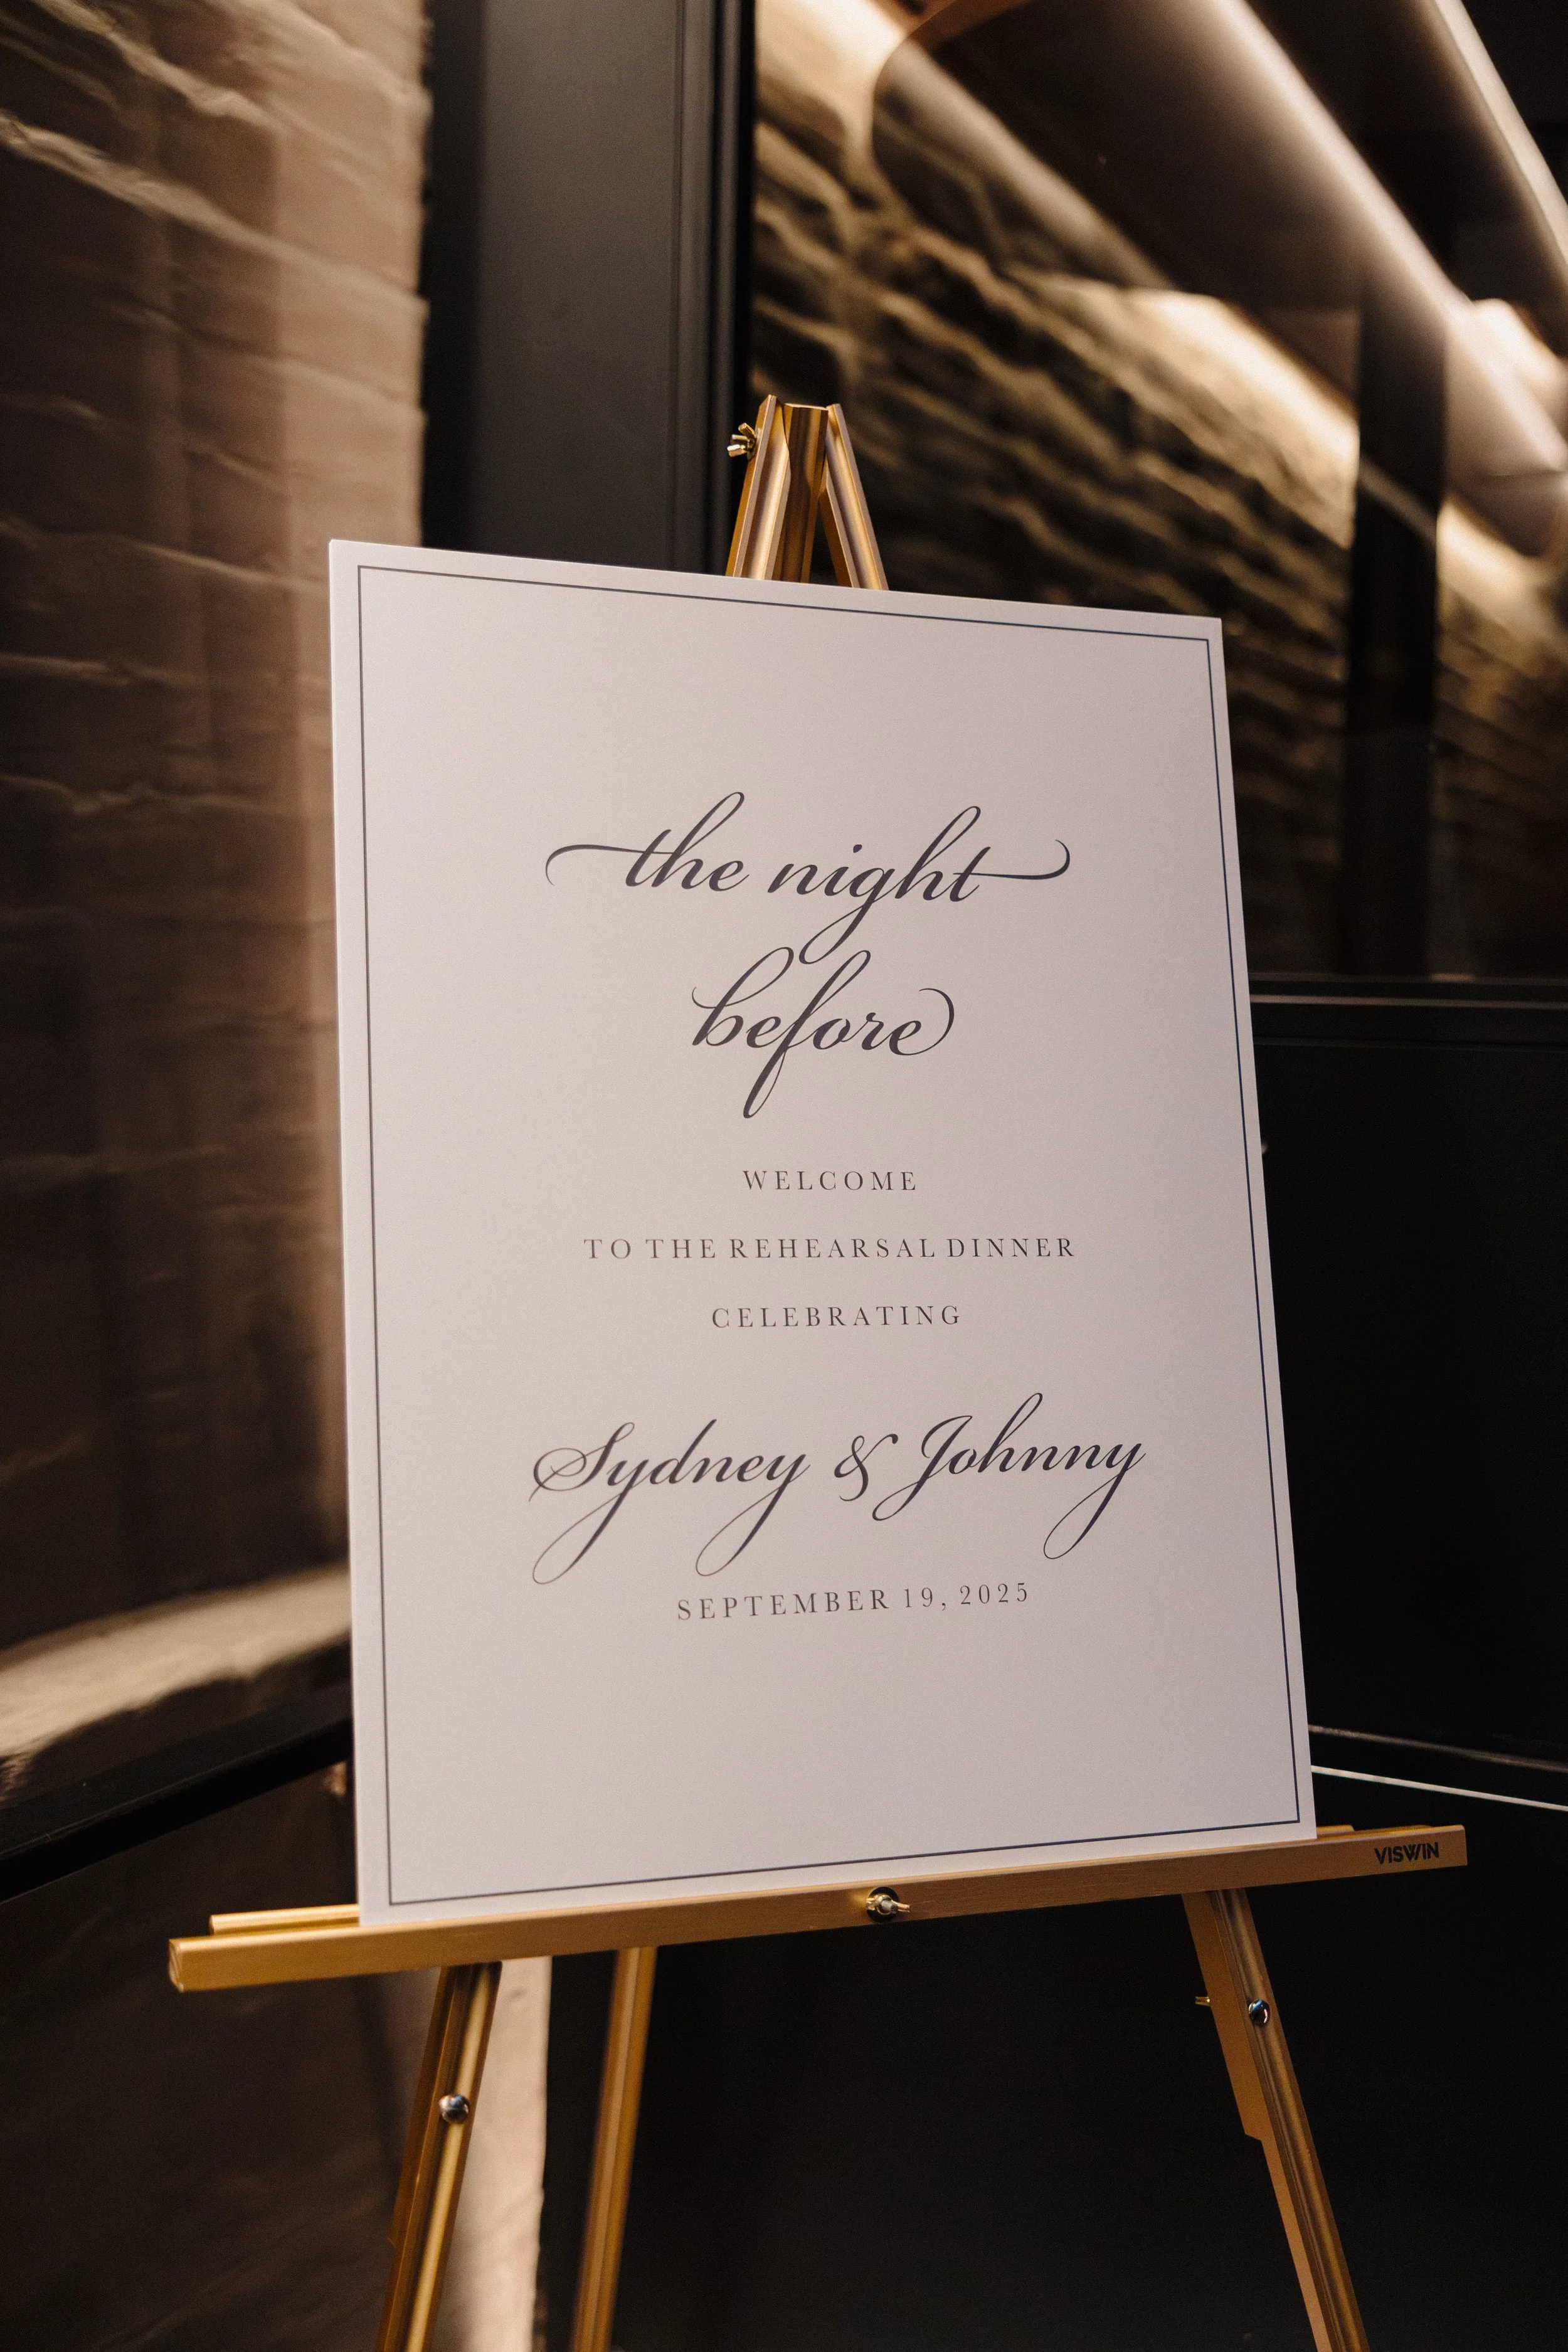 the night
before
WELCOME
TO THE REHEARSAL DINNER
CELEBRATING
Sydney & Johnny
SEPTEMBER 19, 2025
VISWIN